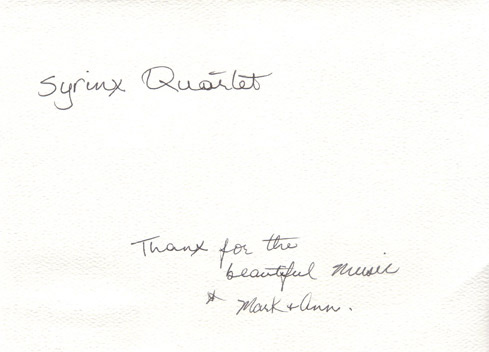 Syrinx Quartet
Thanx for the
beautiful music
* Mark + Ann.